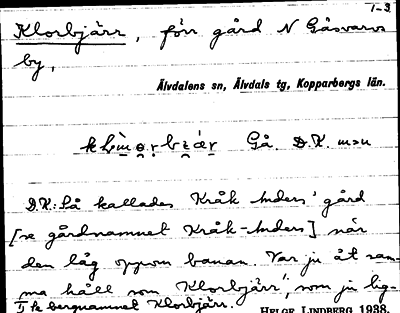 1-3
Klorbjärr, förr gård N Gåsvarvs
by,
Älvdalens sn, Älvdals tg, Kopparbergs län.
Gå. D.K. m>n
D.K: Så kallades Kråk Anders' gård
[se gårdnamnet Kråk-Anders] när
den låg oppom banan. Var ju åt sam-
ma håll som Klorbjärr', som ju lig-
Ij fr bergnamnet Klorbjärr.
HELGE LINDBERG 1938.